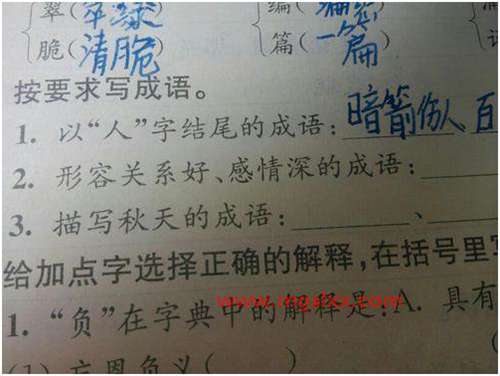 翠(翠绿 编(
脆(清脆) 篇(一篇)
按要求写成语。
1. 以“人”字结尾的成语:暗箭伤人、百
2. 形容关系好、感情深的成语:
3. 描写秋天的成语: 、
给加点字选择正确的解释,在括号里写
1. “负”在字典中的解释是:A. 具有
(1) 忘恩负义( )